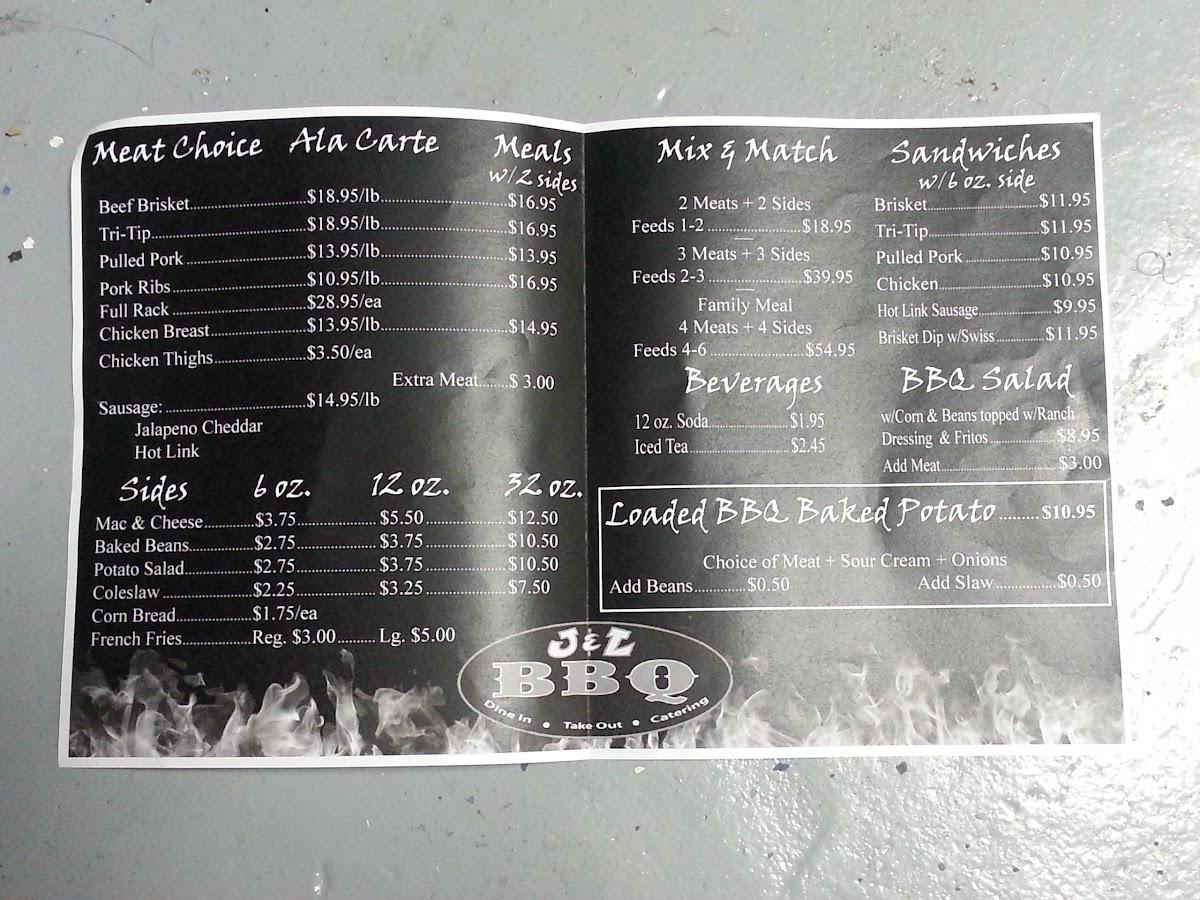 Meat Choice Ala Carte Meals
w/2 sides
Beef Brisket..........$18.95/lb..........$16.95
Tri-Tip..........$18.95/lb..........$16.95
Pulled Pork..........$13.95/lb..........$13.95
Pork Ribs..........$10.95/lb..........$16.95
Full Rack..........$28.95/ea
Chicken Breast..........$13.95/lb..........$14.95
Chicken Thighs..........$3.50/ea
Extra Meat.......$ 3.00
Sausage:..........$14.95/lb
Jalapeno Cheddar
Hot Link
Sides 6 oz. 12 oz. 32 oz.
Mac & Cheese..........$3.75..........$5.50..........$12.50
Baked Beans..........$2.75..........$3.75..........$10.50
Potato Salad..........$2.75..........$3.75..........$10.50
Coleslaw..........$2.25..........$3.25..........$7.50
Corn Bread..........$1.75/ea
French Fries..........Reg. $3.00.......... Lg. $5.00
Mix & Match
2 Meats + 2 Sides
Feeds 1-2..........$18.95
3 Meats + 3 Sides
Feeds 2-3..........$39.95
Family Meal
4 Meats + 4 Sides
Feeds 4-6..........$54.95
Beverages
12 oz. Soda..........$1.95
Iced Tea..........$2.45
Sandwiches
w/6 oz. side
Brisket..........$11.95
Tri-Tip..........$11.95
Pulled Pork..........$10.95
Chicken..........$10.95
Hot Link Sausage..........$9.95
Brisket Dip w/Swiss..........$11.95
BBQ Salad
w/Corn & Beans topped w/Ranch
Dressing & Fritos..........$8.95
Add Meat..........$3.00
Loaded BBQ Baked Potato........$10.95
Choice of Meat + Sour Cream + Onions
Add Beans..........$0.50 Add Slaw..........$0.50
J&L
BBQ
Dine In • Take Out • Catering